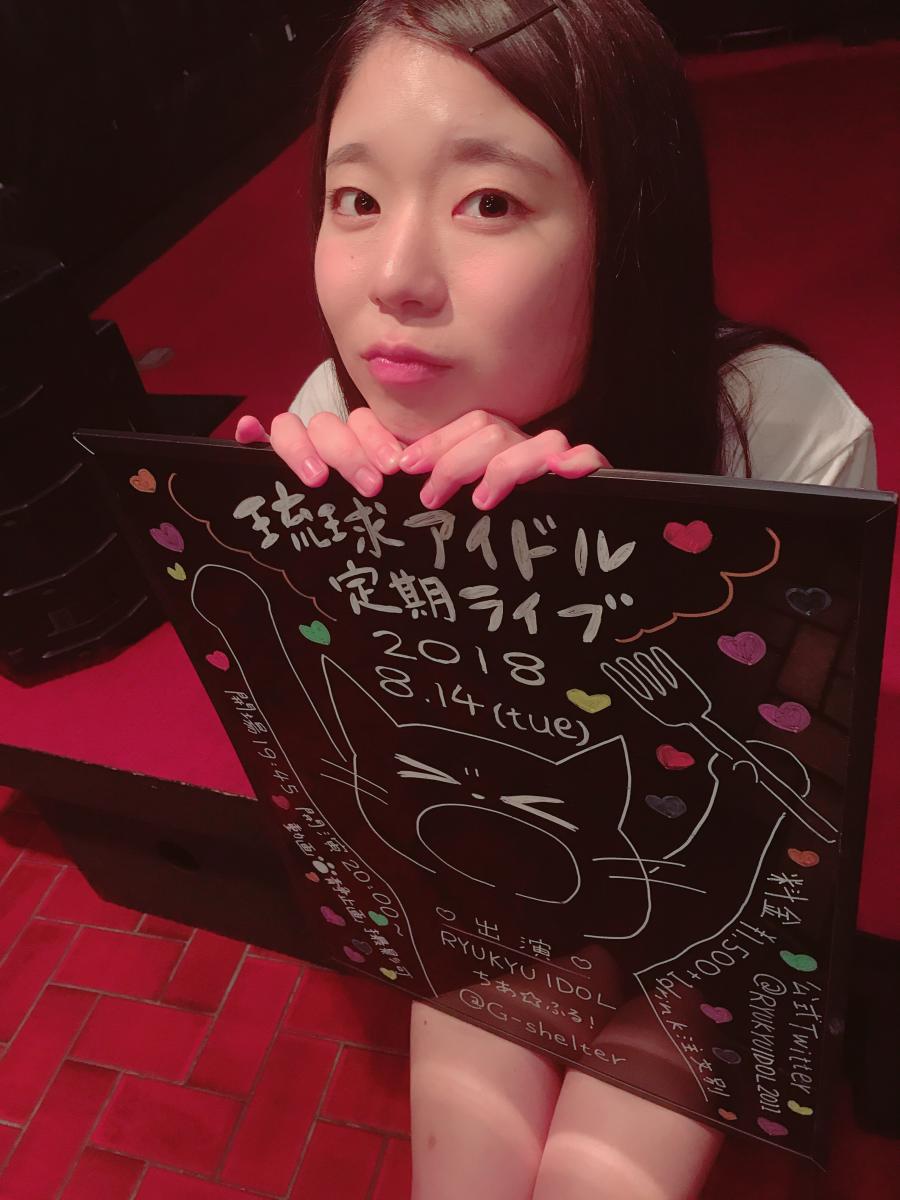 琉球アイドル
定期ライブ
2018
8.14(tue)
開場19:45 開演20:00~
♡出演♡
RYUKYU IDOL
ちあ☆ふる!
@G-shelter
料金¥1,500+1drink注文別
公式Twitter
@RYUKYUIDOL2011